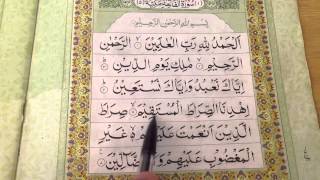 سورة الفاتحة مكية
بسم الله الرحمن الرحيم
اَلْحَمْدُ لِلّٰهِ رَبِّ الْعٰلَمِيْنَ ۙ الرَّحْمٰنِ
الرَّحِيْمِ ۙ مٰلِكِ يَوْمِ الدِّيْنِ ۗ
اِيَّاكَ نَعْبُدُ وَاِيَّاكَ نَسْتَعِيْنُ ۗ
اِهْدِنَا الصِّرَاطَ الْمُسْتَقِيْمَ ۙ صِرَاطَ
الَّذِيْنَ اَنْعَمْتَ عَلَيْهِمْ غَيْرِ
الْمَغْضُوْبِ عَلَيْهِمْ وَ